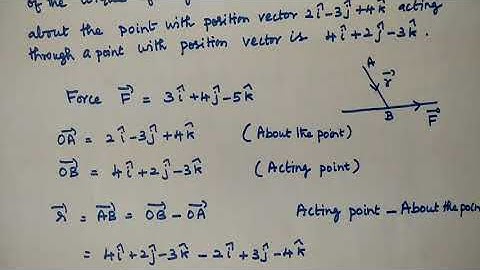 of the
about the point with position vector 2î-3ĵ+4k̂ acting
through a point with position vector is 4î+2ĵ-3k̂.
Force F⃗ = 3î+4ĵ-5k̂
A
r⃗
B
F⃗
OA⃗ = 2î-3ĵ+4k̂ (About the point)
OB⃗ = 4î+2ĵ-3k̂ (Acting point)
r⃗ = AB⃗ = OB⃗ - OA⃗ Acting point - About the poin
= 4î+2ĵ-3k̂ - 2î+3ĵ-4k̂